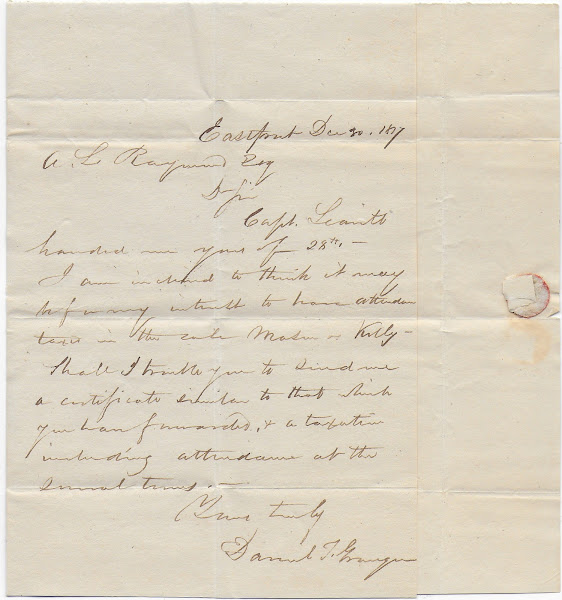 Eastport Dec 30. 1837
A. L. Raymond Esq
Dr Sir
Capt. Leavitt
handed me yours of 28th. —
I am inclined to think it may
be for my interest to have attendance
taxed in the case Mason vs Kelly —
Shall I trouble you to send me
a certificate similar to that which
you have forwarded, & a taxation
including attendance at the
several terms —
Yours truly
Daniel T. Granger